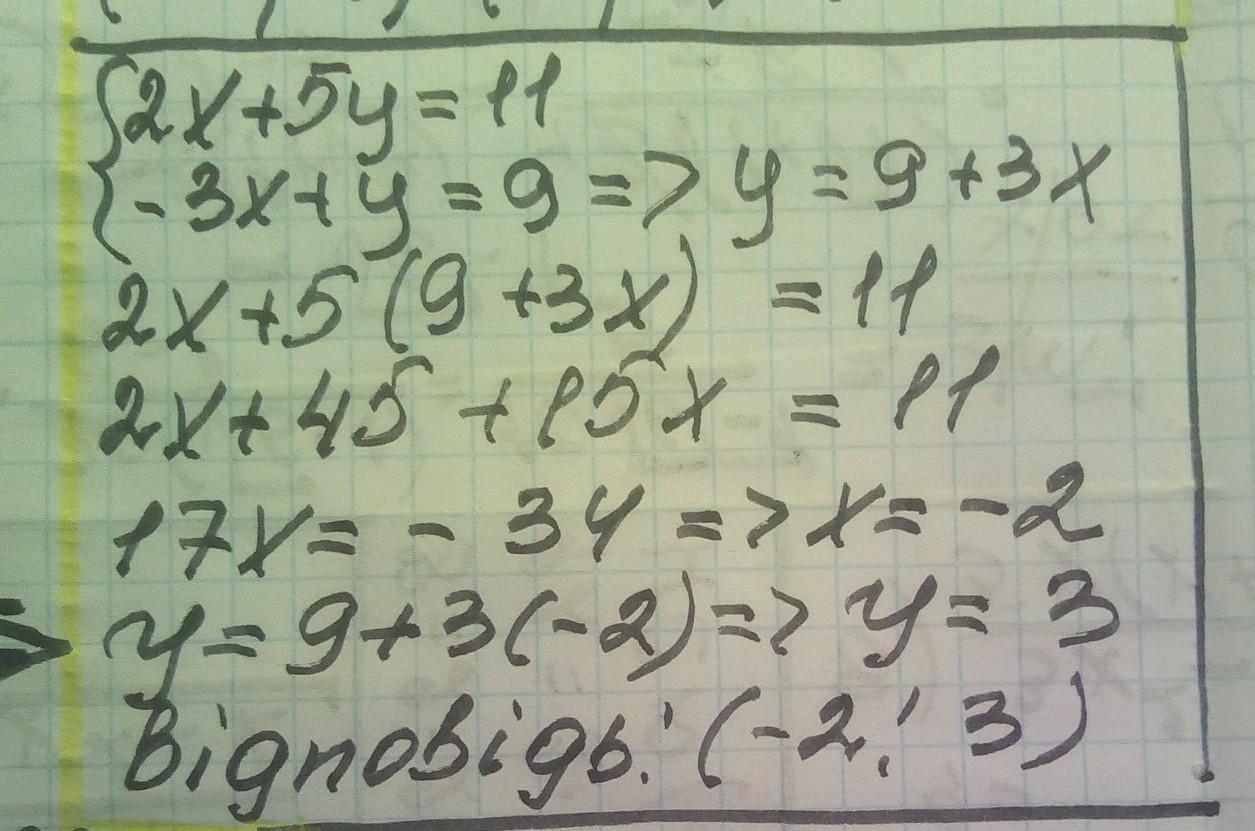 {2x+5y=11
{-3x+y=9=>y=9+3x
2x+5(9+3x)=11
2x+45+15x=11
17x=-34=>x=-2
y=9+3(-2)=>y=3
Відповідь: (-2; 3)